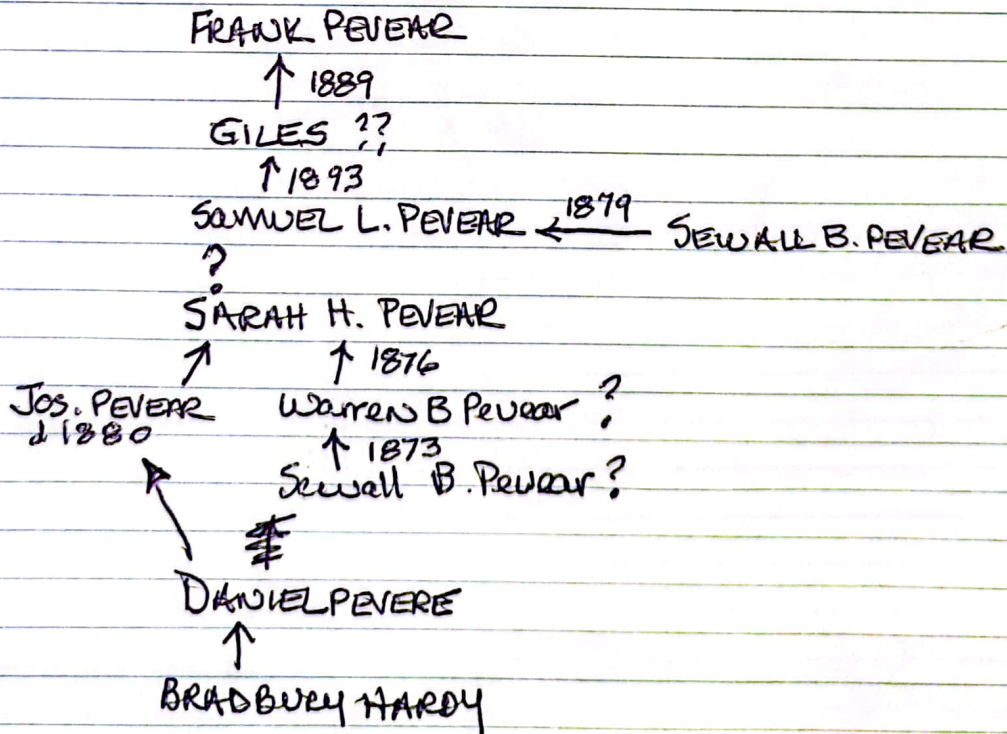 FRANK PEVEAR
↑ 1889
GILES ??
↑ 1893
SAMUEL L. PEVEAR ← 1879 SEWALL B. PEVEAR
?
SARAH H. PEVEAR
↑ 1876
JOS. PEVEAR Warren B Pevear ?
d 1880 ↑ 1873
Sewall B. Pevear ?
DANIEL PEVERE
↑
BRADBURY HARDY